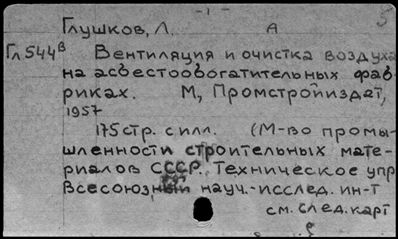 -1-
5
Глушков, Л. А
Гл544в Вентиляция и очистка воздуха
на асбестообогатительных фаб
риках. М, Промстройиздат,
1957
175 стр. с илл. (М-во промы-
шленности строительных мате-
риалов СССР. Техническое упр
Всесоюзный науч.-исслед. ин-т
см. след. карт